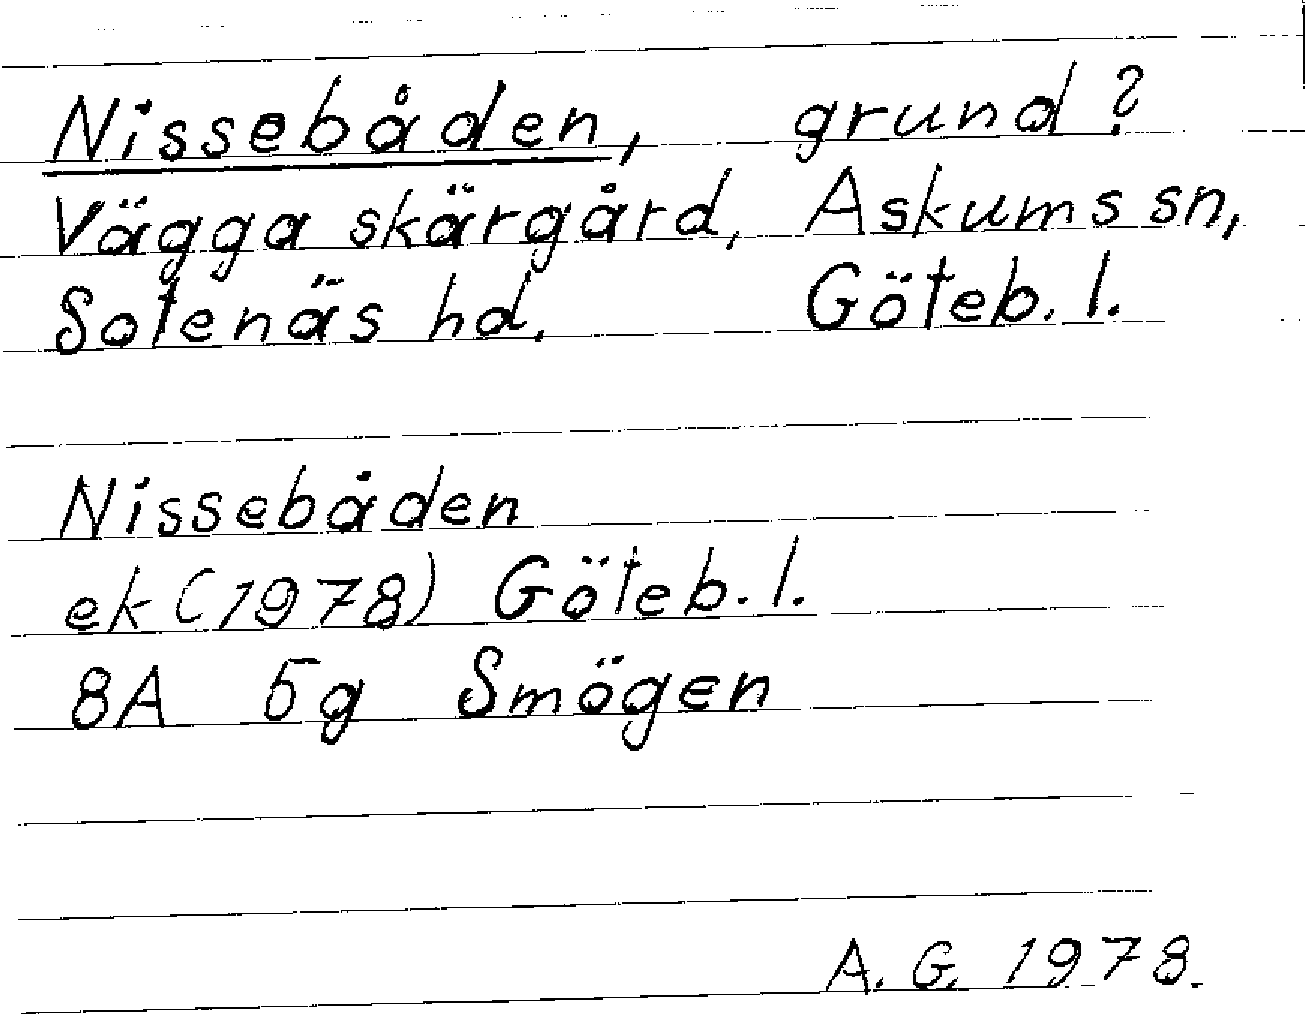 Nissebåden, grund?
Vägga skärgård, Askums sn,
Sotenäs hd. Göteb. l.
Nissebåden
ek (1978) Göteb. l.
8A 5g Smögen
A. G. 1978.